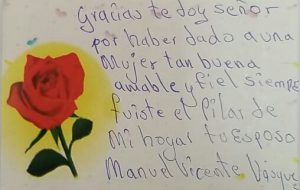 Gracias te doy señor
por haber dado a una
mujer tan buena
amable y fiel siempre
fuiste el Pilar de
mi hogar tu esposo
Manuel Vicente